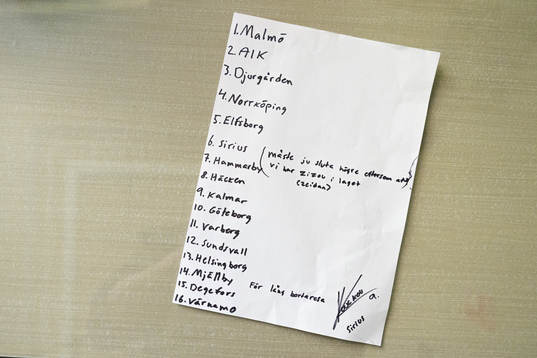 1. Malmö
2. AIK
3. Djurgården
4. Norrköping
5. Elfsborg
6. Sirius (måste ju sluta högre eftersom att)
7. Hammarby vi har zizou i laget
8. Häcken (zeidan)
9. Kalmar
10. Göteborg
11. Varberg
12. Sundsvall
13. Helsingborg
14. Mjällby För lång bortaresa
15. Degefors
16. Värnamo
Sirius